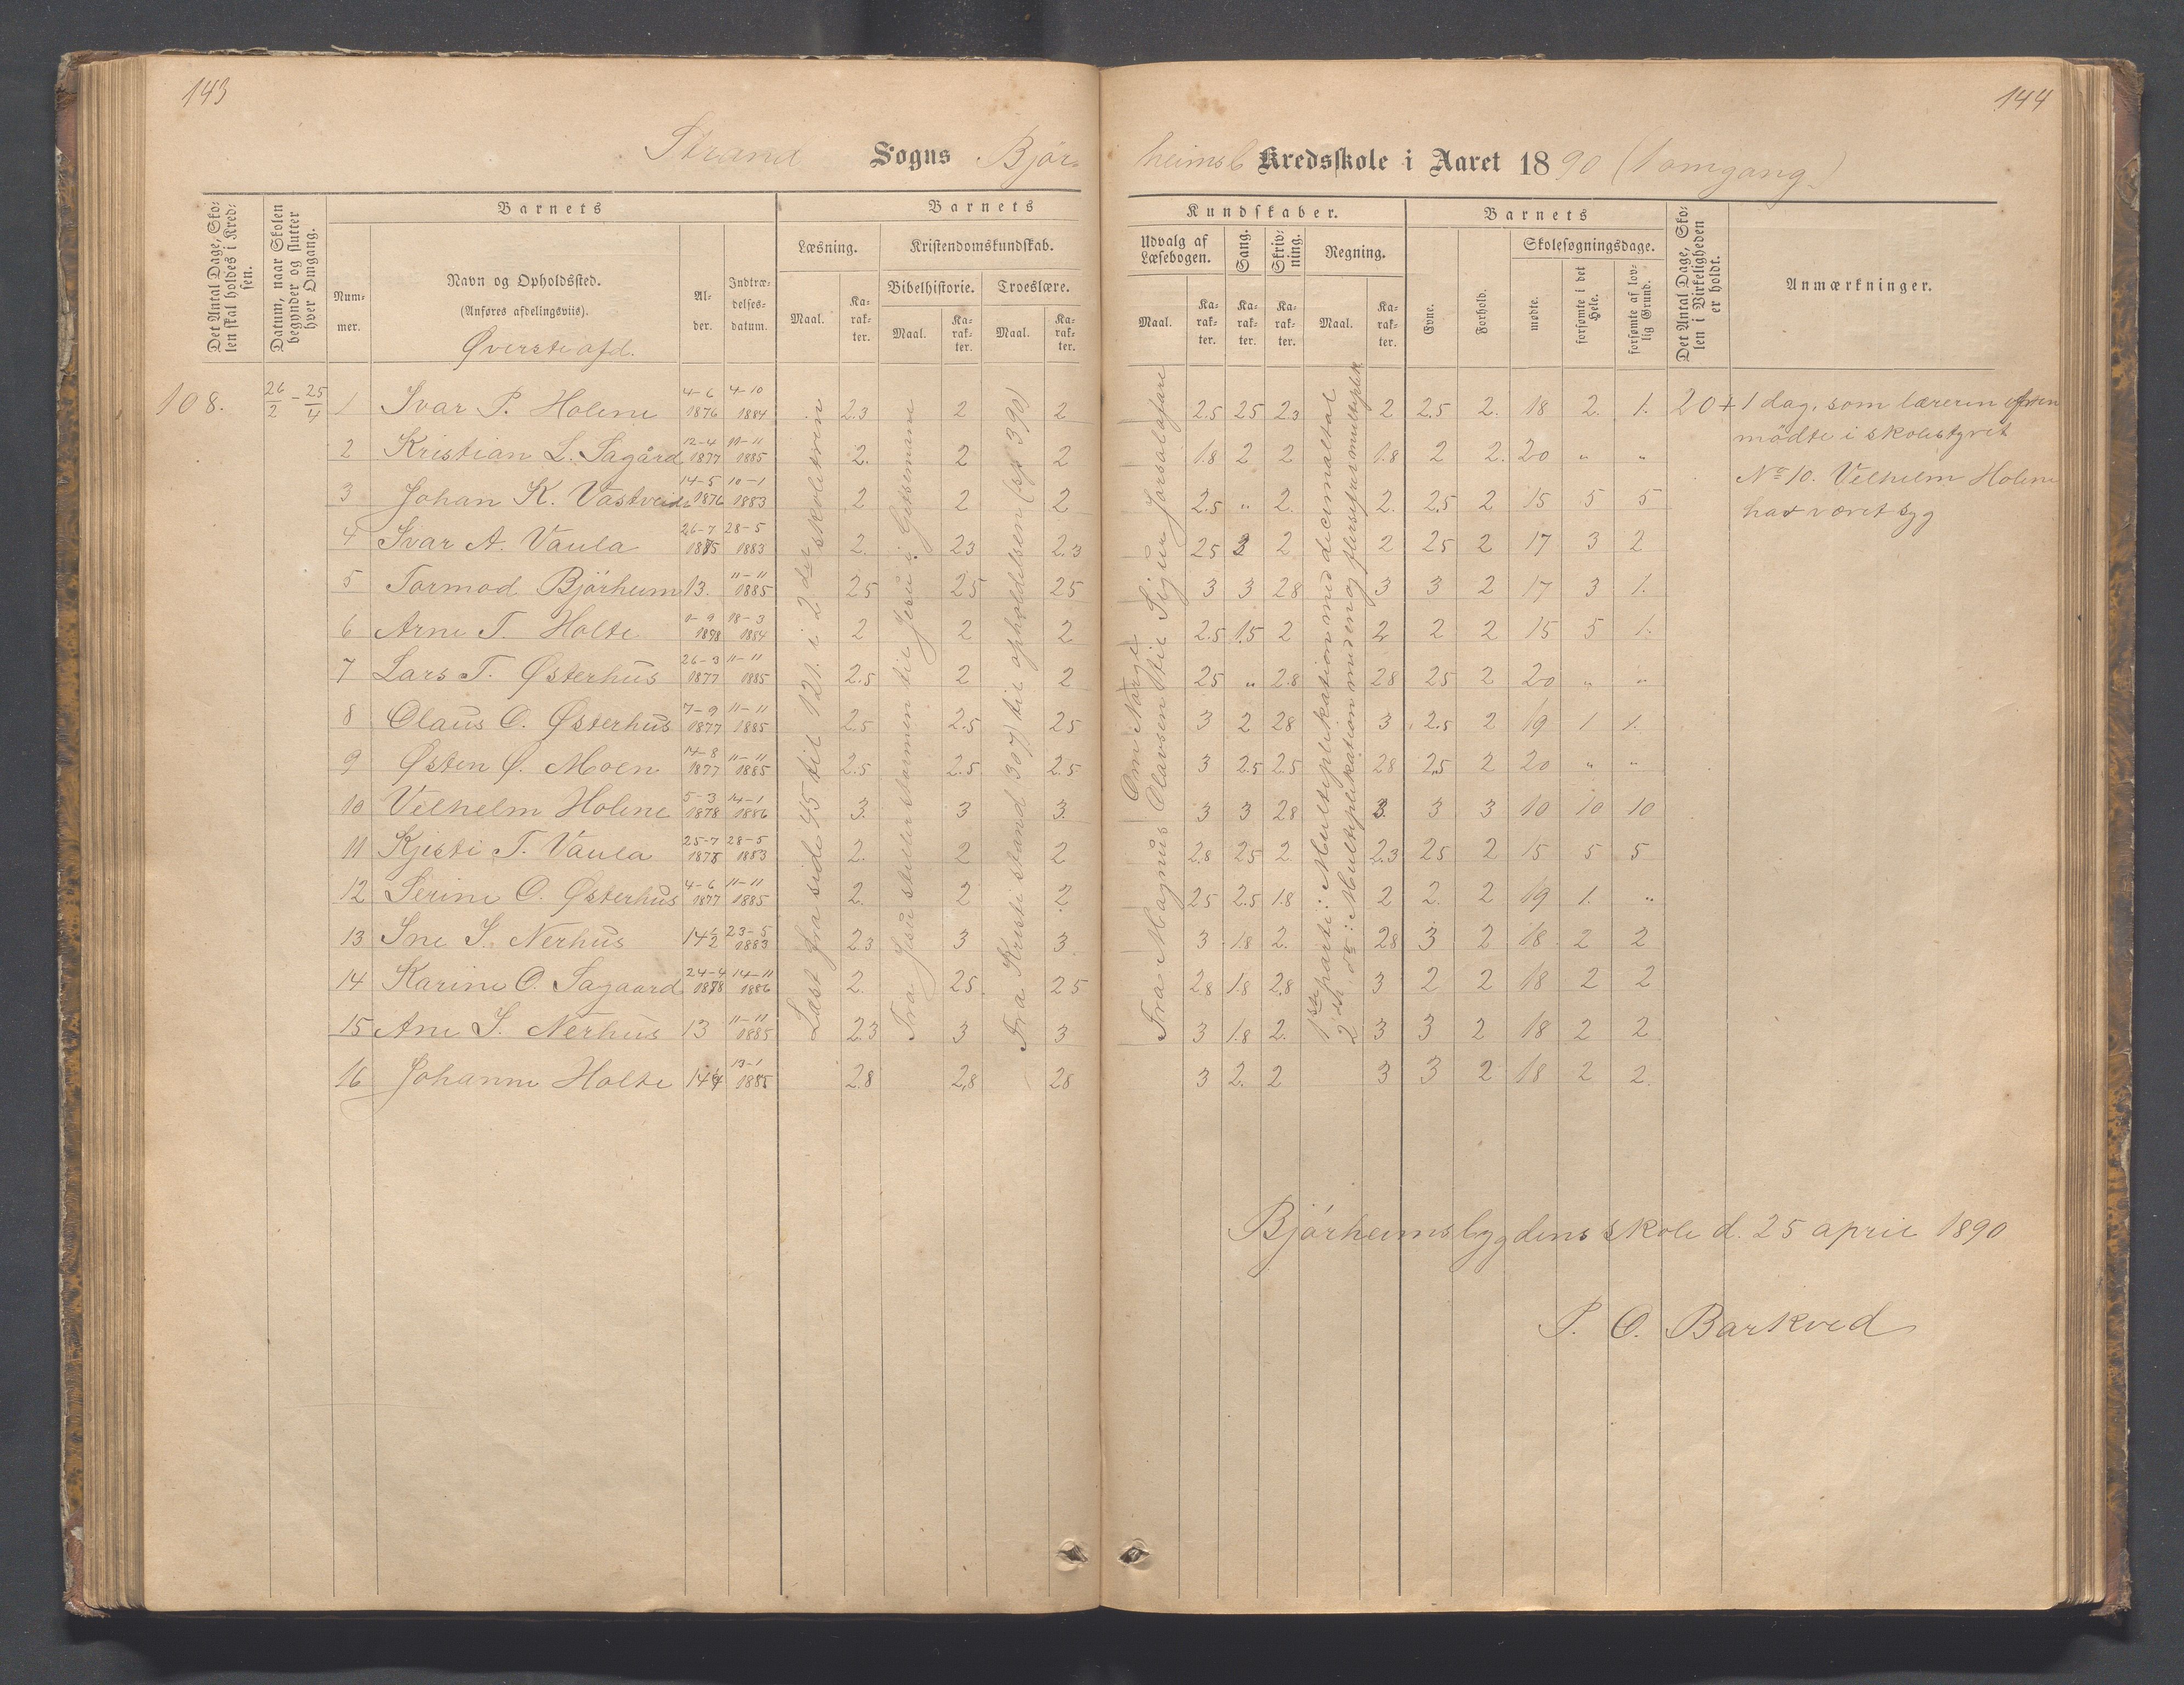 143
144
Strand Sogns Björ- heimsb Kredsskole i Aaret 1890 (1 omgang)
Det Antal Dage, Skolen skal holdes i Kredsen.
Datum, naar Skolen begynder og slutter hver Omgang.
Barnets
Nummer.
Navn og Opholdssted.
(Anføres afdelingsviis).
Øverste afd.
Alder.
Indtrædelsesdatum.
Barnets
Kundskaber.
Læsning.
Kristendomskundskab.
Bibelhistorie.
Troeslære.
Maal.
Karakter.
Maal.
Karakter.
Maal.
Karakter.
Udvalg af Læsebogen.
Sang.
Skrivning.
Regning.
Maal.
Karakter.
Karakter.
Karakter.
Maal.
Karakter.
Barnets
Evne.
Forhold.
Skolesøgningsdage.
mødte.
forsømte i det Hele.
forsømte af lovlig Grund.
Det Antal Dage, Skolen i Virkeligheden er holdt.
Anmærkninger.
108. 26/2 - 25/4
1 Ivar P. Holene 4-6 1876 4-10 1884 2.3 2 2 2.5 25 23 2 2.5 2. 18 2. 1. 20+
2 Kristian L. Sagård 12-4 1877 11-11 1885 2. 2 2 1.8 2 2 1.8 2 2. 20 " "
3 Johan K. Vastveid 14-5 1876 10-1 1883 2 2 2 2.5 " 2. 2. 2.5 2 15 5 5
4 Ivar A. Vaula 26-7 1875 28-5 1883 2. 23 2.3 25 3 2 2 25 2 17 3 2
5 Tormod Björheim 13. 11-11 1885 25 25 25 3 3 28 3 3 2 17 3 1.
6 Arne T. Holte 1878 18-3 1884 2 2 2 2.5 1.5 2 2 2 2 15 5 1.
7 Lars T. Østerhus 26-3 1877 11-11 1885 2.5 2 2 25 " 2.8 28 25 2 20 " "
8 Olaus O. Østerhus 7-9 1877 11-11 1885 2.5 2.5 25 3 2 28 3 2.5 2 19 1 1.
9 Østen Ø. Moen 14-8 1877 11-11 1885 2.5 2.5 2.5 3 2.5 2.5 28 2.5 2 20 " "
10 Velhelm Holene 5-3 1878 14-1 1886 3. 3 3. 3 3 28 3. 3 3 10 10 10
11 Kjesti T. Vaula 25-7 1875 28-5 1883 2. 2 2 2.8 25 2. 2.3 25 2 15 5 5
12 Serine O. Østerhus 4-6 1877 11-11 1885 2. 2 2 25 2.5 1.8 2 2. 2 19 1. "
13 Ine S. Nerhus 14½ 23-5 1883 23 3 3 3 1.8 2. 28 3 2 18 2 2
14 Karine O. Sagaard 24-4 1878 14-11 1886 2. 25 25 28 1.8 2.8 3 2 2 18 2 2
15 Ane S. Nerhus 13 11-11 1885 2.3 3 3 3 1.8 2. 3 3 2 18 2 2
16 Johanne Holte 14 13-1 1885 2.8 2,8 28 3 2. 2 3 3 2 18 2 2.
Læst fra side 45 til 121. i 2den skoletrin
Fra Jesu stiller stormen til Jesu i Getsemane
Fra Kristi stand 307) til opholdelsen (sp 390)
Om Norge
Fra Magnus Olavsen til Sigur Jorsalafare
1ste parti: Multiplikation med decimaltal
2det do: Multiplikation med en og flersifret multiplik
1 dag, som læreren
mödte i skolestyret
No 10. Velhelm Holene
har været syg
Bjórheimsbygdens skole d. 25 april 1890
P. O. Barkved